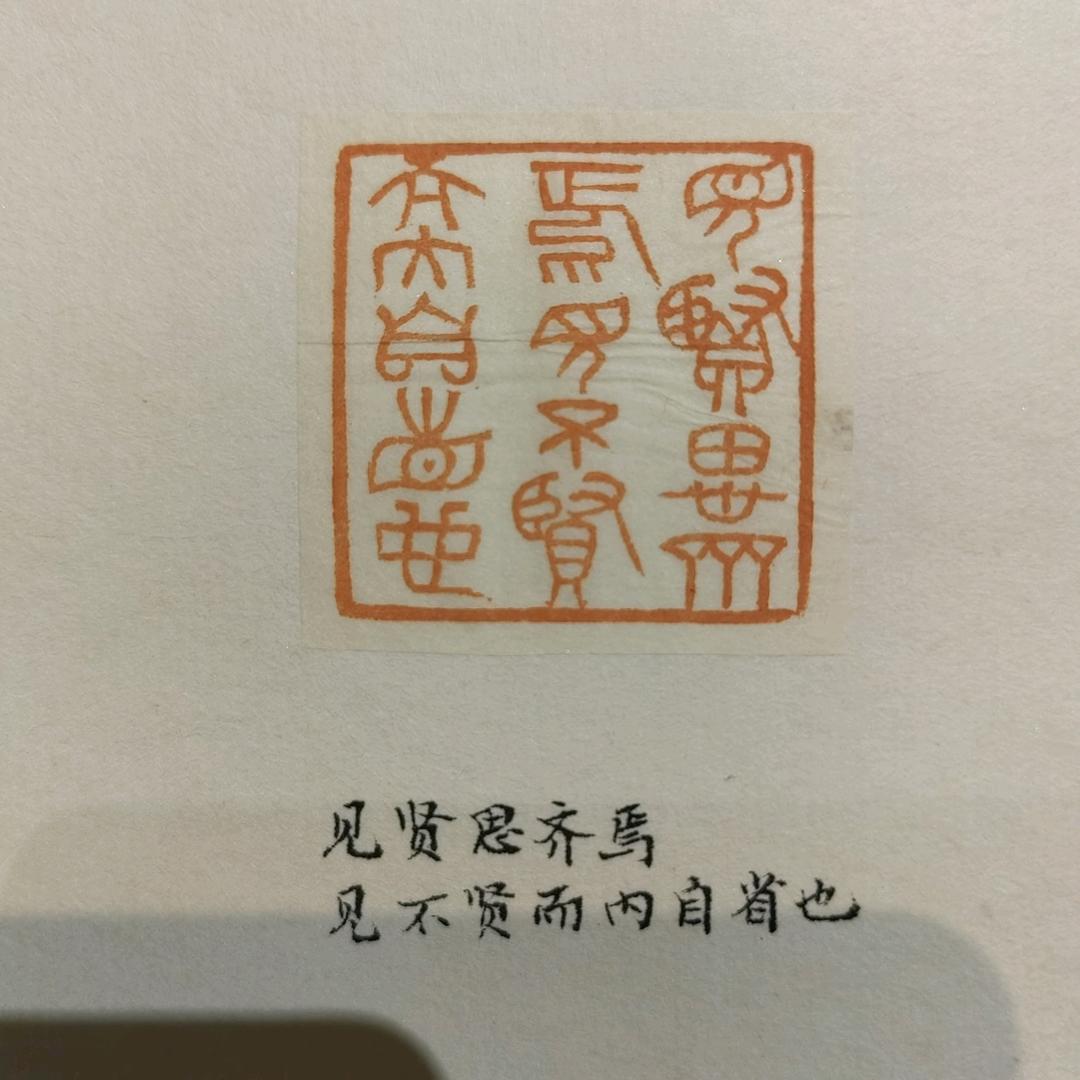 見賢思齊
焉見不賢
而內自省也
见贤思齐焉
见不贤而内自省也